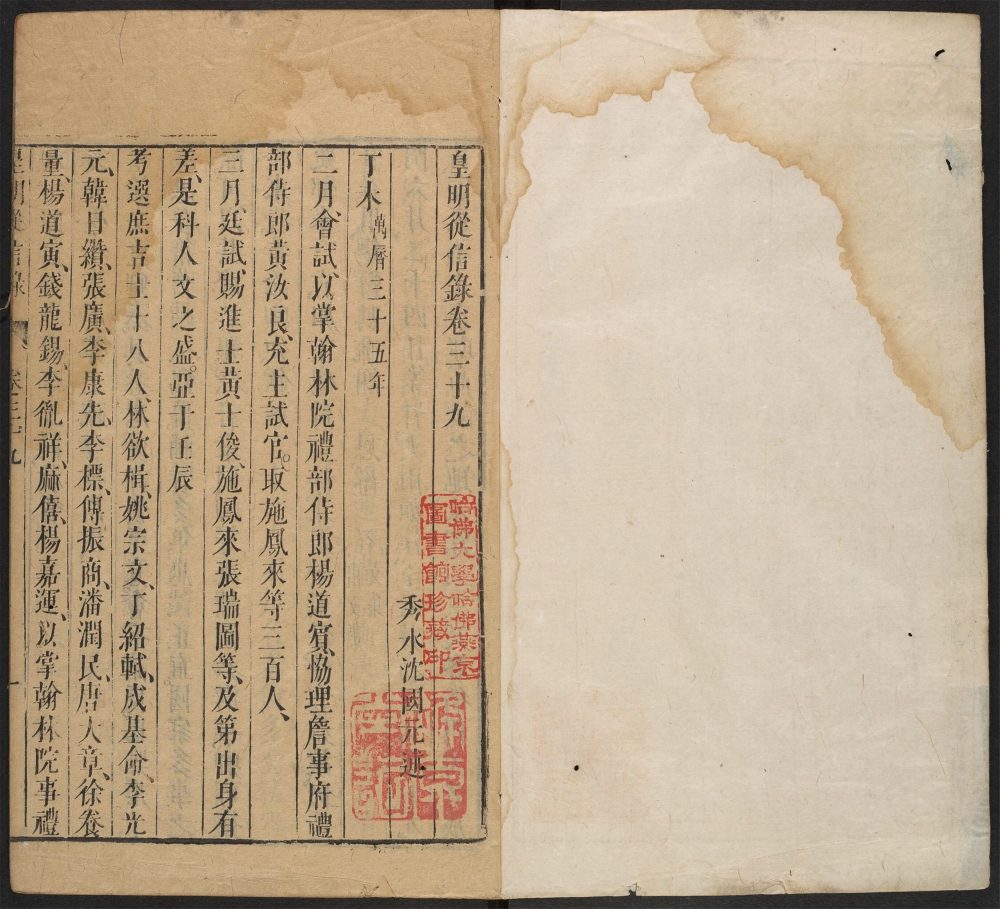 皇明從信錄卷三十九
秀水沈國元述
丁未萬曆三十五年
二月、會試、以掌翰林院禮部侍郎楊道賓、恊理詹事府禮
部侍郎黃汝良、充主試官。取施鳳來等三百人、
三月、廷試、賜進士黃士俊、施鳳來、張瑞圖等、及第出身有
差、是科人文之盛、亞于壬辰
考選庶吉士十八人、林欲楫、姚宗文、丁紹軾、成基命、李光
元、韓日纘、張廣、李康先、李標、傅振商、潘潤民、唐大章、徐養
量、楊道寅、錢龍錫、李胤祥、麻僖、楊嘉運、以掌翰林院事禮
皇明從信錄 卷三十九 一
哈佛大學哈佛燕京
圖書館珍藏印